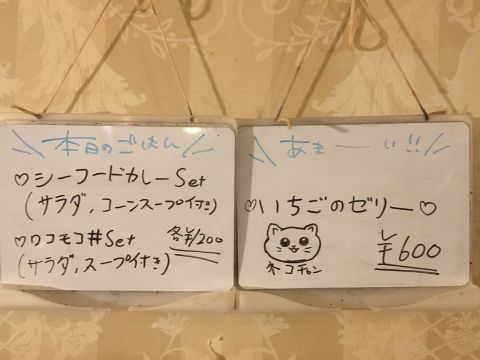 本日のごはん
♡シーフードカレーSet
(サラダ,コーンスープ付き)
♡ロコモコ丼Set
(サラダ,スープ付き)
各¥1,200
あまーい!!
♡いちごのゼリー♡
¥600
ネコチャン